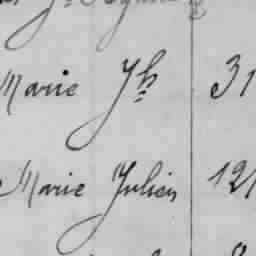 Marie Jh 31
Marie Julien 121